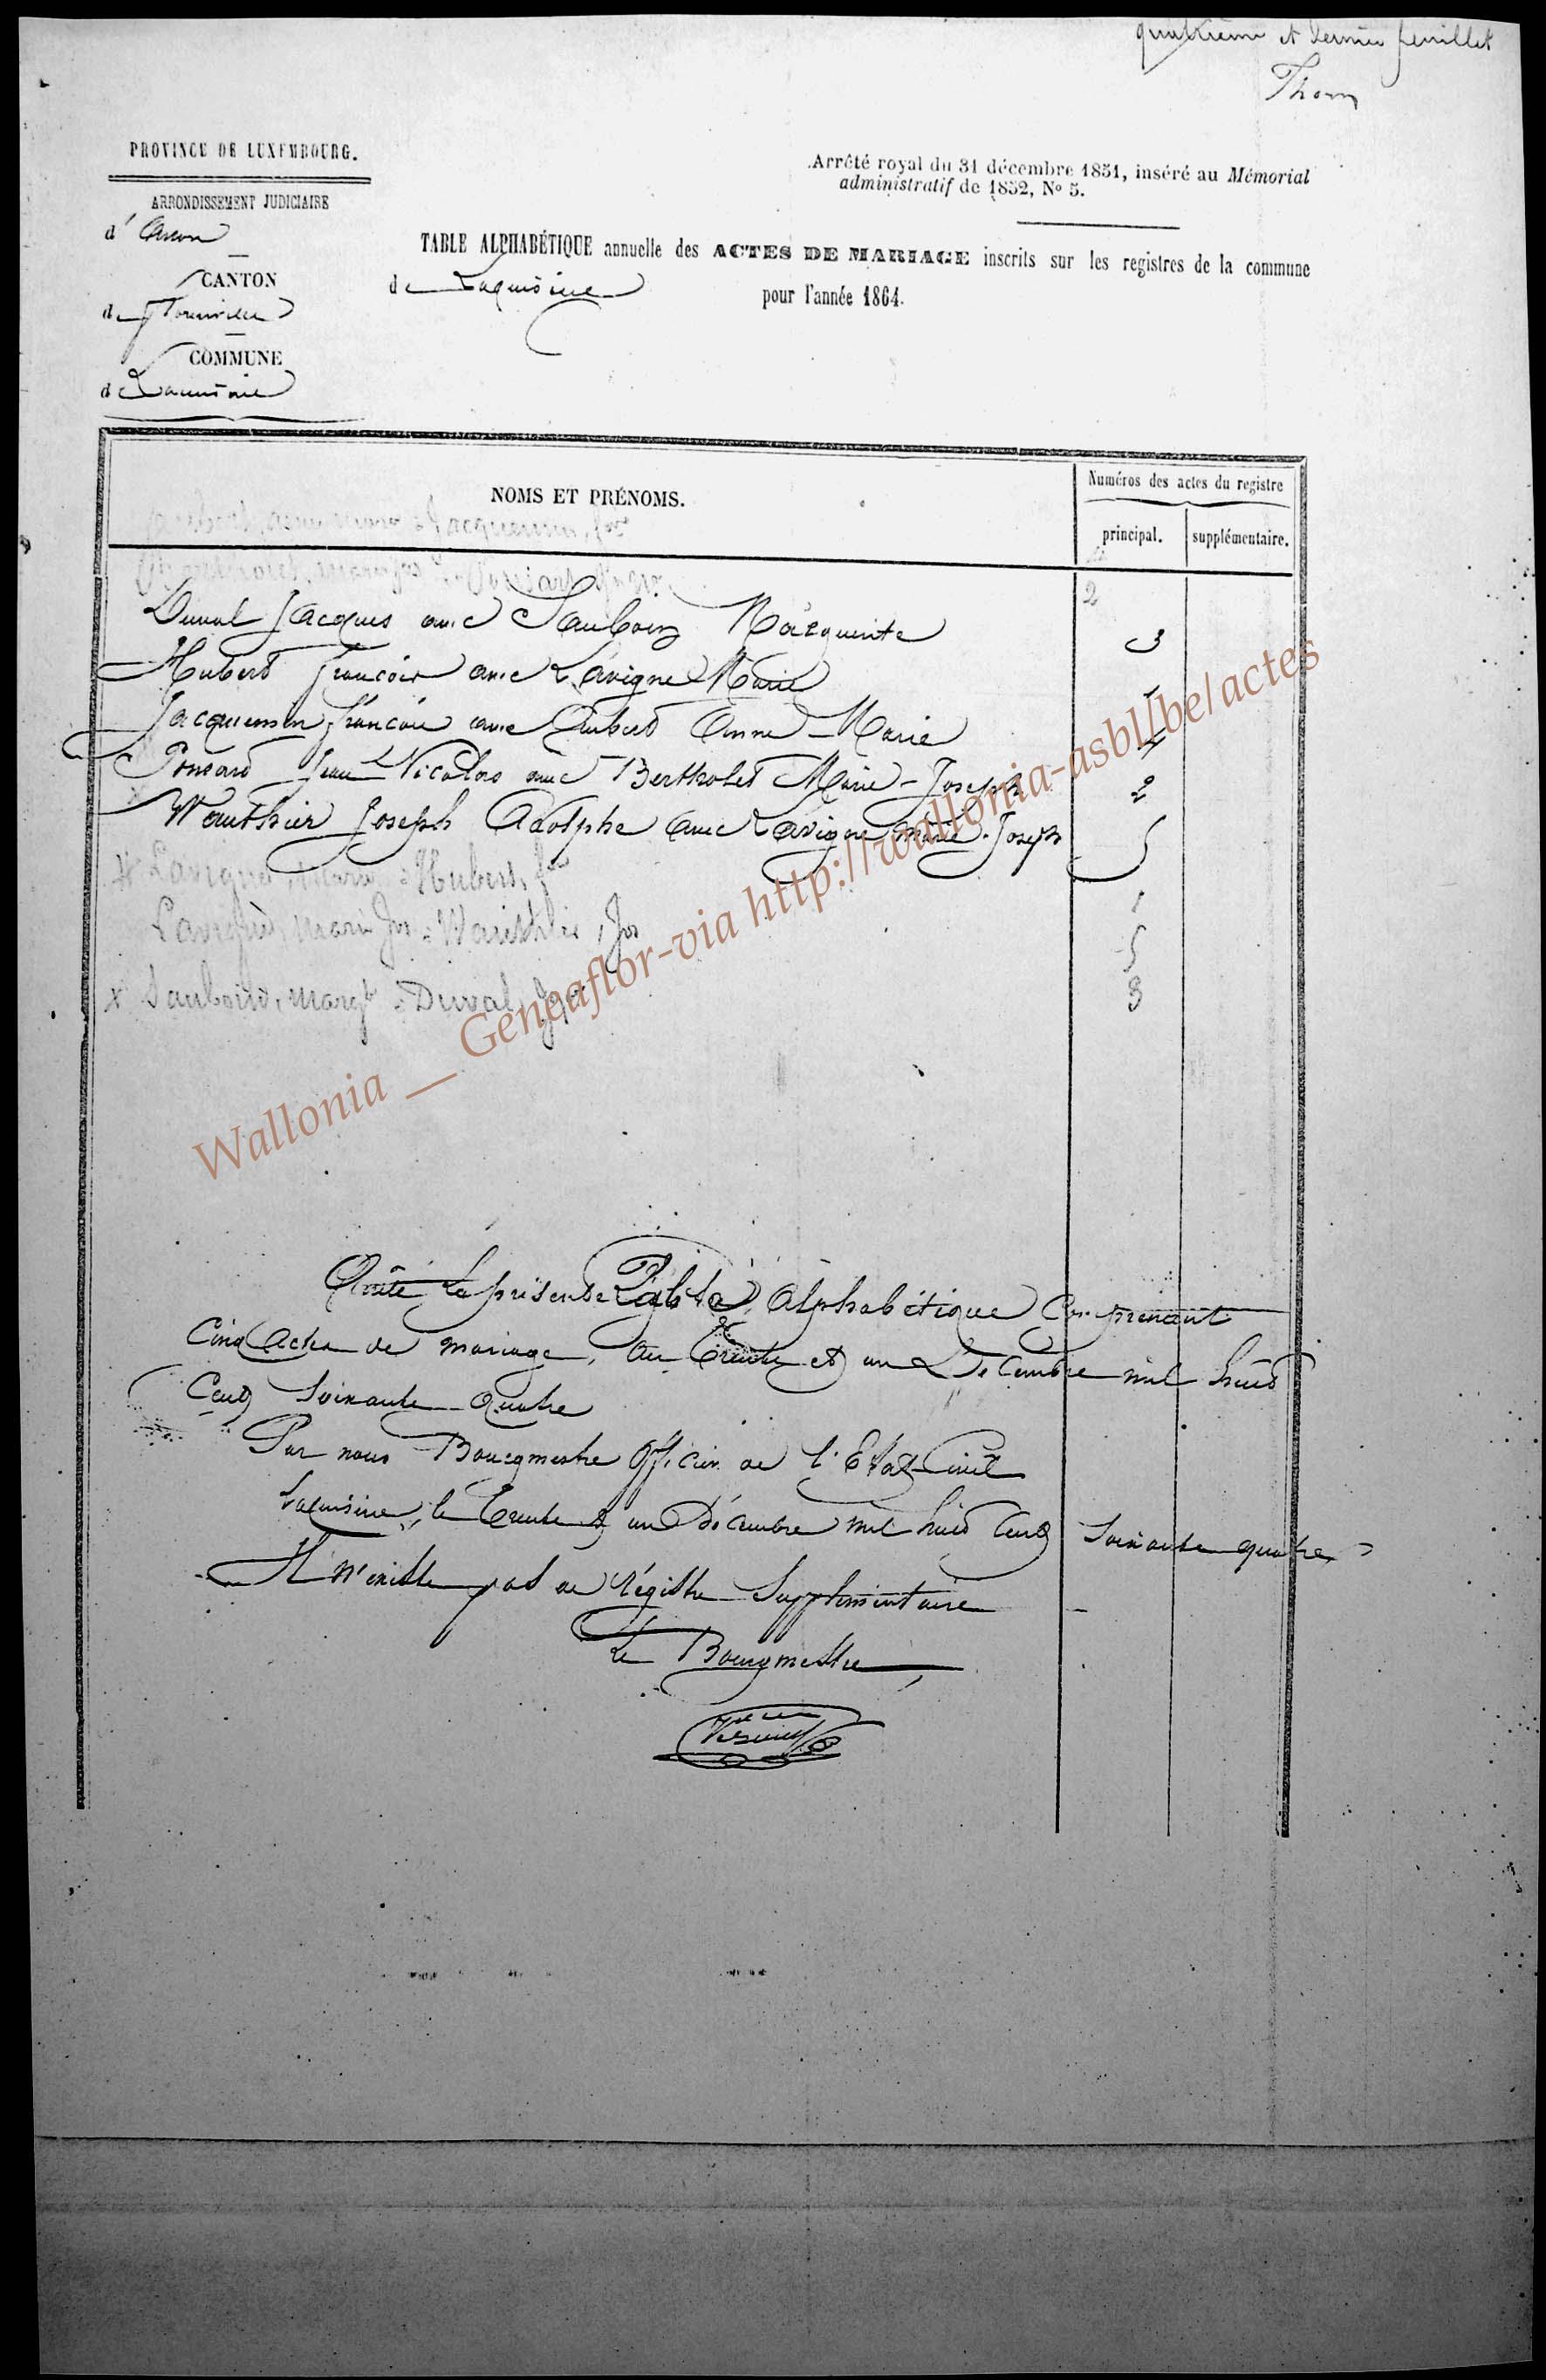 quatrième et dernier feuillet
Thom
PROVINCE DE LUXEMBOURG.
ARRONDISSEMENT JUDICIAIRE
d'Arlon
CANTON
de Florenville
COMMUNE
de Lacuisine
Arrêté royal du 31 décembre 1851, inséré au Mémorial
administratif de 1852, No 5.
TABLE ALPHABÉTIQUE annuelle des ACTES DE MARIAGE inscrits sur les registres de la commune
de Lacuisine pour l'année 1864.
NOMS ET PRÉNOMS.
Numéros des actes du registre
principal. supplémentaire.
Jacquemin, fois
2
Duval Jacques avec Sauboin Marguerite 3
Hubert François avec Lavigne Marie
Jacquemin François avec Aubert Anne-Marie 4
Ponsard Jean Nicolas avec Bertholet Marie-Joseph 2
Wauthier Joseph Adolphe avec Lavigne Marie-Joseph 5
Lavigne, Marie = Hubert, f 1
Lavigne, Marie Jos = Wauthier, Jos 5
x Sauboin, Margte = Duval, 3
Wallonia __ Geneaflor-via http://wallonia-asbl.be/actes
Arrêté la présente Table Alphabétique Comprenant
Cinq Actes de mariage, au Trente et un Décembre mil huit
Cent Soixante-Quatre
Par nous Bourgmestre Officier de l'Etat-Civil
Lacuisine, le Trente et un Décembre mil huit Cent Soixante quatre
Il n'existe pas de régistre Supplémentaire
Le Bourgmestre